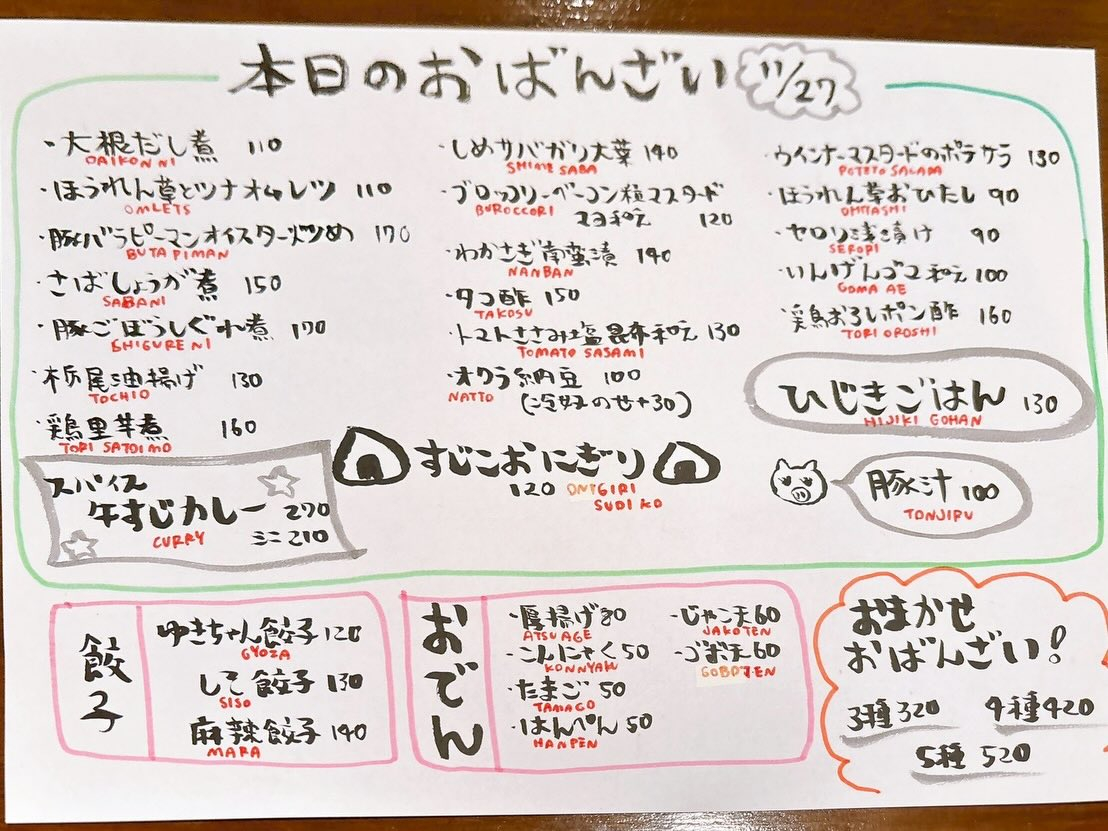 本日のおばんざい 11/27
・大根だし煮 110
DAIKON NI
・ほうれん草とツナオムレツ 110
OMLETS
・豚バラピーマンオイスター炒め 170
BUTA PIMAN
・さばしょうが煮 150
SABANI
・豚ごぼうしぐれ煮 170
SHIGURE NI
・栃尾油揚げ 130
TOCHIO
・鶏里芋煮 160
TORI SATOIMO
スパイス
牛すじカレー 270
CURRY ミニ 210
・しめサバガリ大葉 140
SHIME SABA
・ブロッコリーベーコン粒マスタード
BUROCCORI マヨ和え 120
・わかさぎ南蛮漬 140
NANBAN
・タコ酢 150
TAKOSU
・トマトささみ塩昆布和え 130
TOMATO SASAMI
・オクラ納豆 100
NATTO (冷奴のせ+30)
すじこおにぎり
120 ONIGIRI
SUDIKO
・ウインナーマスタードのポテサラ 130
POTETO SALADA
・ほうれん草おひたし 90
OHITASHI
・セロリ浅漬け 90
SERORI
・いんげんゴマ和え 100
GOMA AE
・鶏おろしポン酢 160
TORI OROSHI
ひじきごはん 130
HIJIKI GOHAN
豚汁 100
TONJIRU
餃子
ゆきちゃん餃子 120
GYOZA
しそ餃子 130
SISO
麻辣餃子 140
MARA
おでん
・厚揚げ 80
ATSUAGE
・こんにゃく 50
KONNYAKU
・たまご 50
TAMAGO
・はんぺん 50
HANPEN
・じゃこ天 60
JAKOTEN
・ゴボ天 60
GOBOTEN
おまかせ
おばんざい!
3種 320 4種 420
5種 520